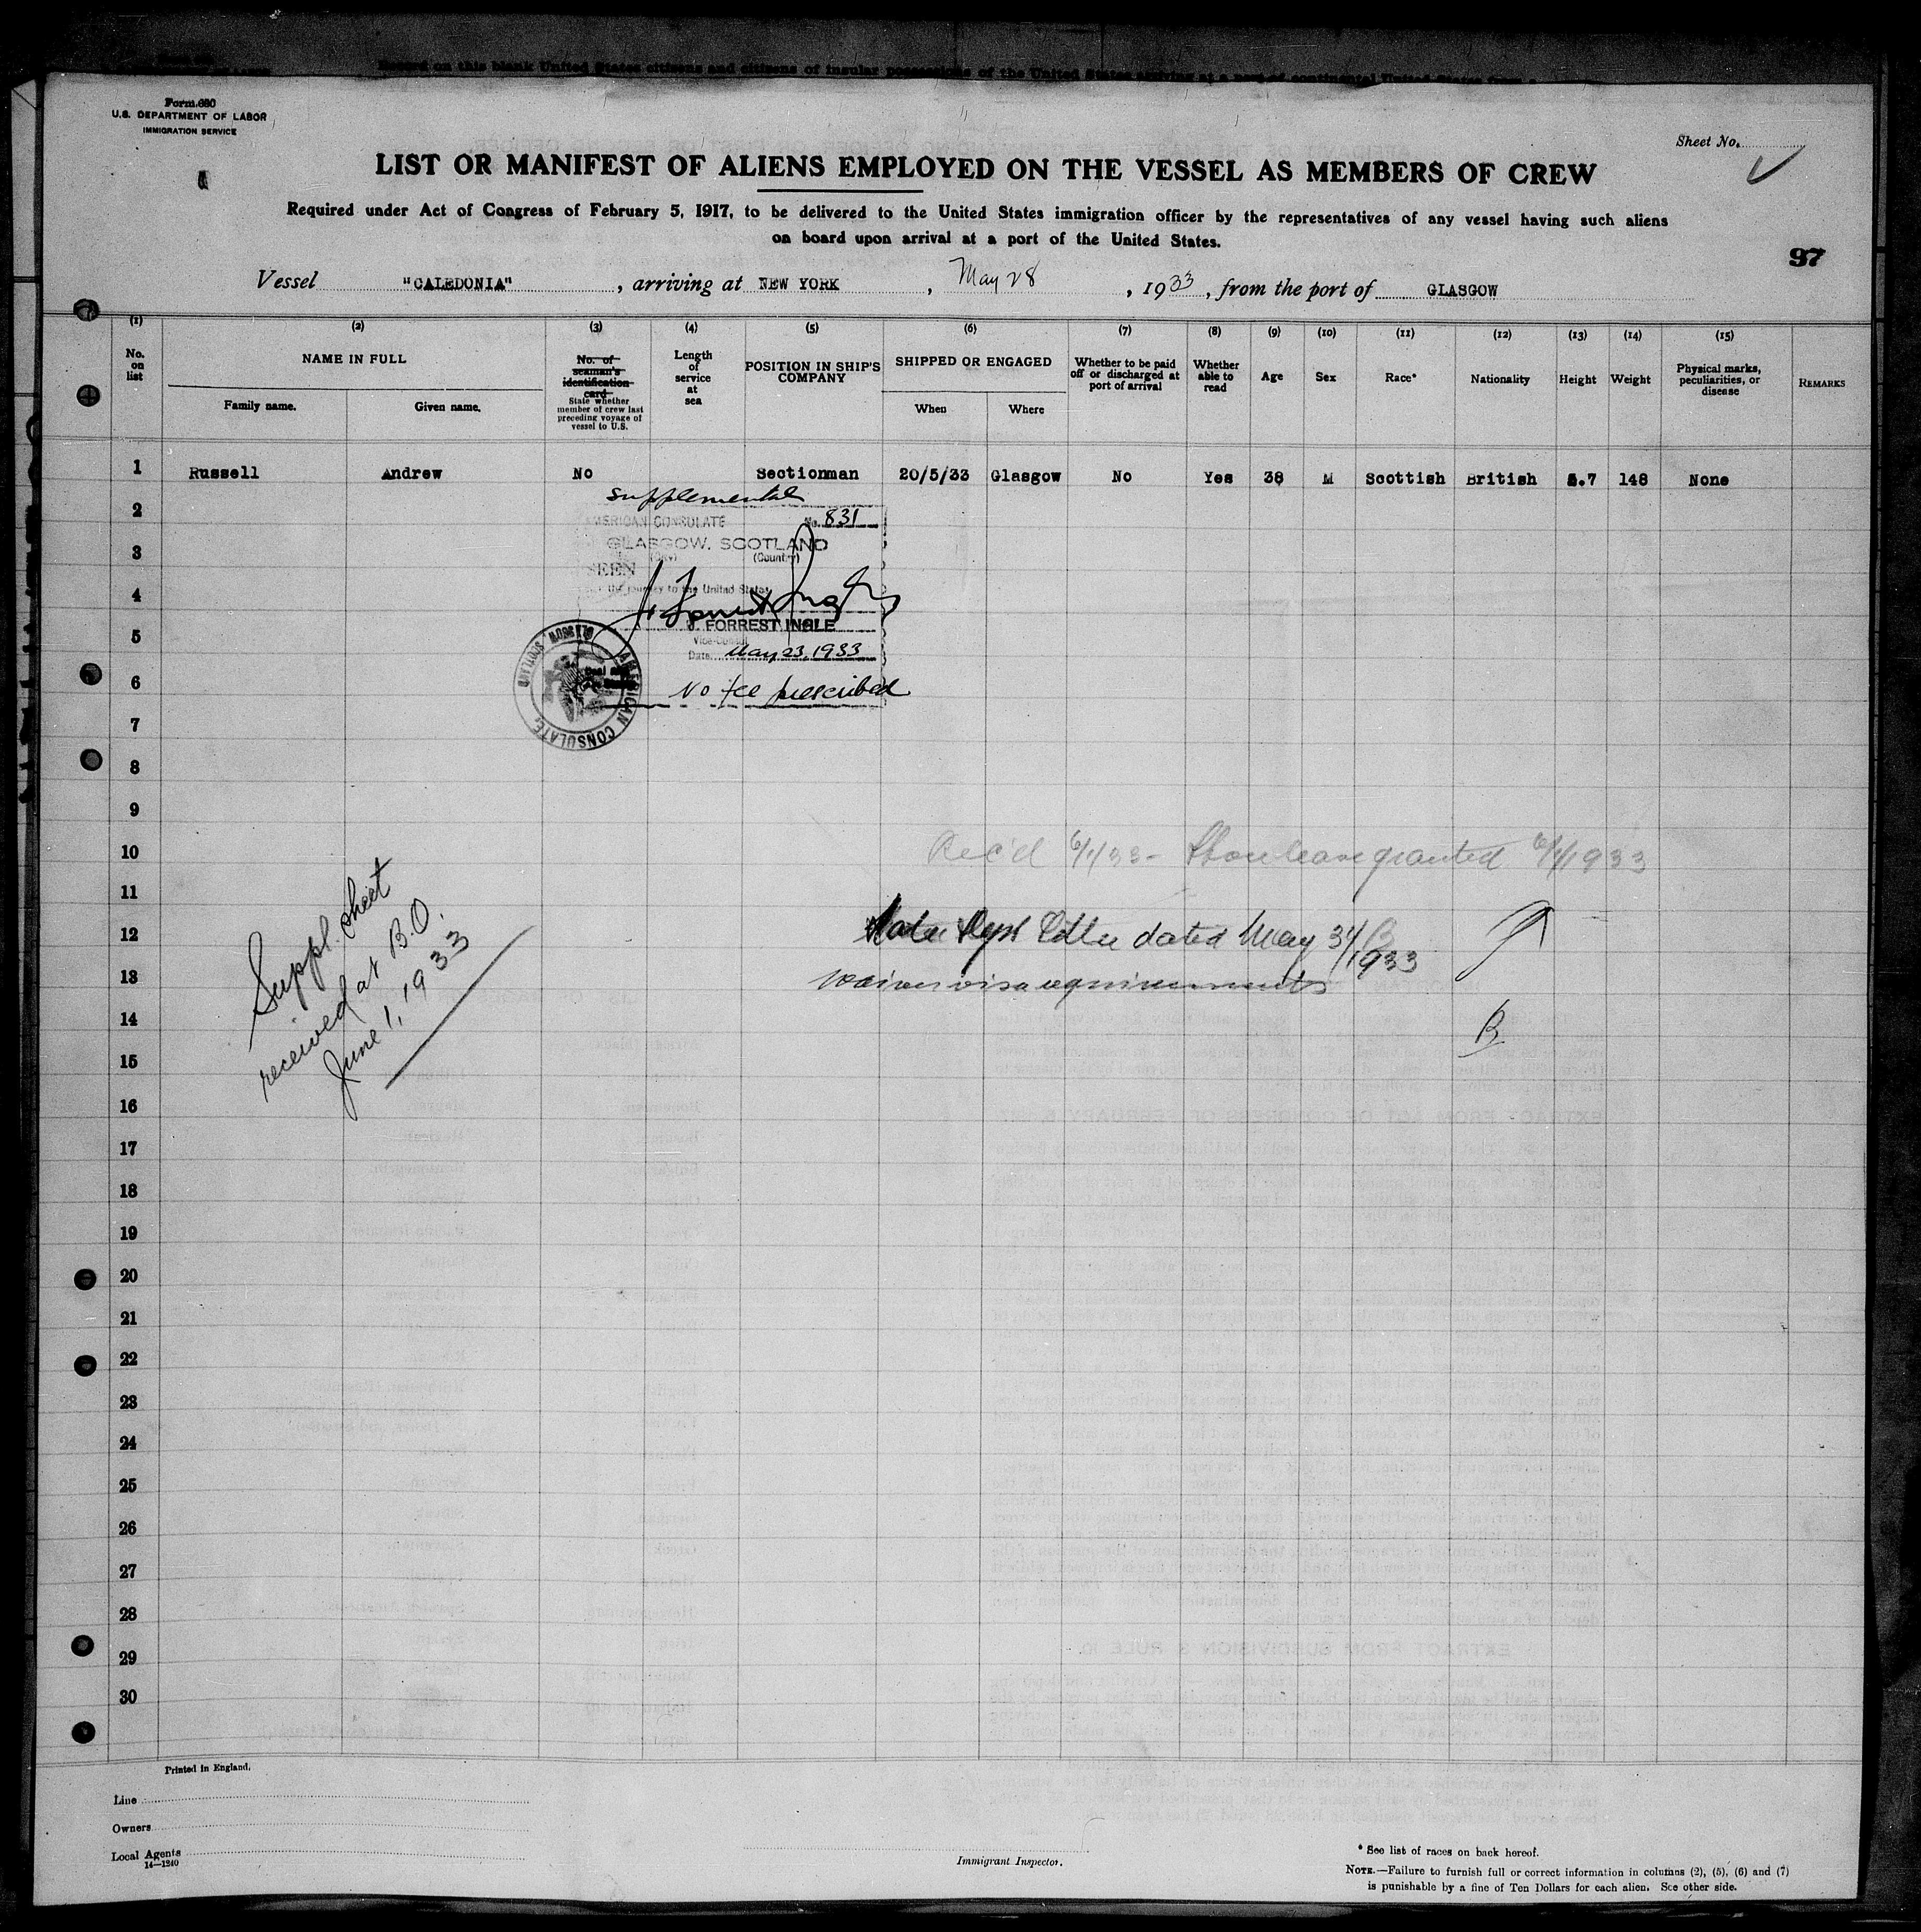 Form 680
U.S. DEPARTMENT OF LABOR
IMMIGRATION SERVICE
Sheet No.
LIST OR MANIFEST OF ALIENS EMPLOYED ON THE VESSEL AS MEMBERS OF CREW
Required under Act of Congress of February 5, 1917, to be delivered to the United States immigration officer by the representatives of any vessel having such aliens
on board upon arrival at a port of the United States.
97
Vessel "CALEDONIA", arriving at NEW YORK, May 28, 1933, from the port of GLASGOW
(1) (2) (3) (4) (5) (6) (7) (8) (9) (10) (11) (12) (13) (14) (15)
No. on list
NAME IN FULL
Family name. Given name.
No. of seaman's identification card
State whether member of crew last preceding voyage of vessel to U.S.
Length of service at sea
POSITION IN SHIP'S COMPANY
SHIPPED OR ENGAGED
When Where
Whether to be paid off or discharged at port of arrival
Whether able to read
Age
Sex
Race*
Nationality
Height
Weight
Physical marks, peculiarities, or disease
REMARKS
1 Russell Andrew No Sectionman 20/5/33 Glasgow No Yes 38 M Scottish British 5.7 148 None
supplemental
2
AMERICAN CONSULATE No. 831
3
GLASGOW, SCOTLAND
(City) (Country)
SEEN
4
the journey to the United States
5
J. FORREST INGLE
Vice-Consul
Date May 23, 1933
6
No fee prescribed
AMERICAN CONSULATE, GLASGOW, SCOTLAND
7
8
9
10
Rec'd 6/1/33 - Shore leave granted 6/1/1933
11
12
dated May 31/
1933
13
waives visa requirements
14
B
15
Suppl. sheet
received at B.O.
June 1, 1933
16
17
18
19
20
21
22
23
24
25
26
27
28
29
30
Printed in England.
Line
Owners
Local Agents
14—1240
Immigrant Inspector.
* See list of races on back hereof.
NOTE.—Failure to furnish full or correct information in columns (2), (5), (6) and (7)
is punishable by a fine of Ten Dollars for each alien. See other side.